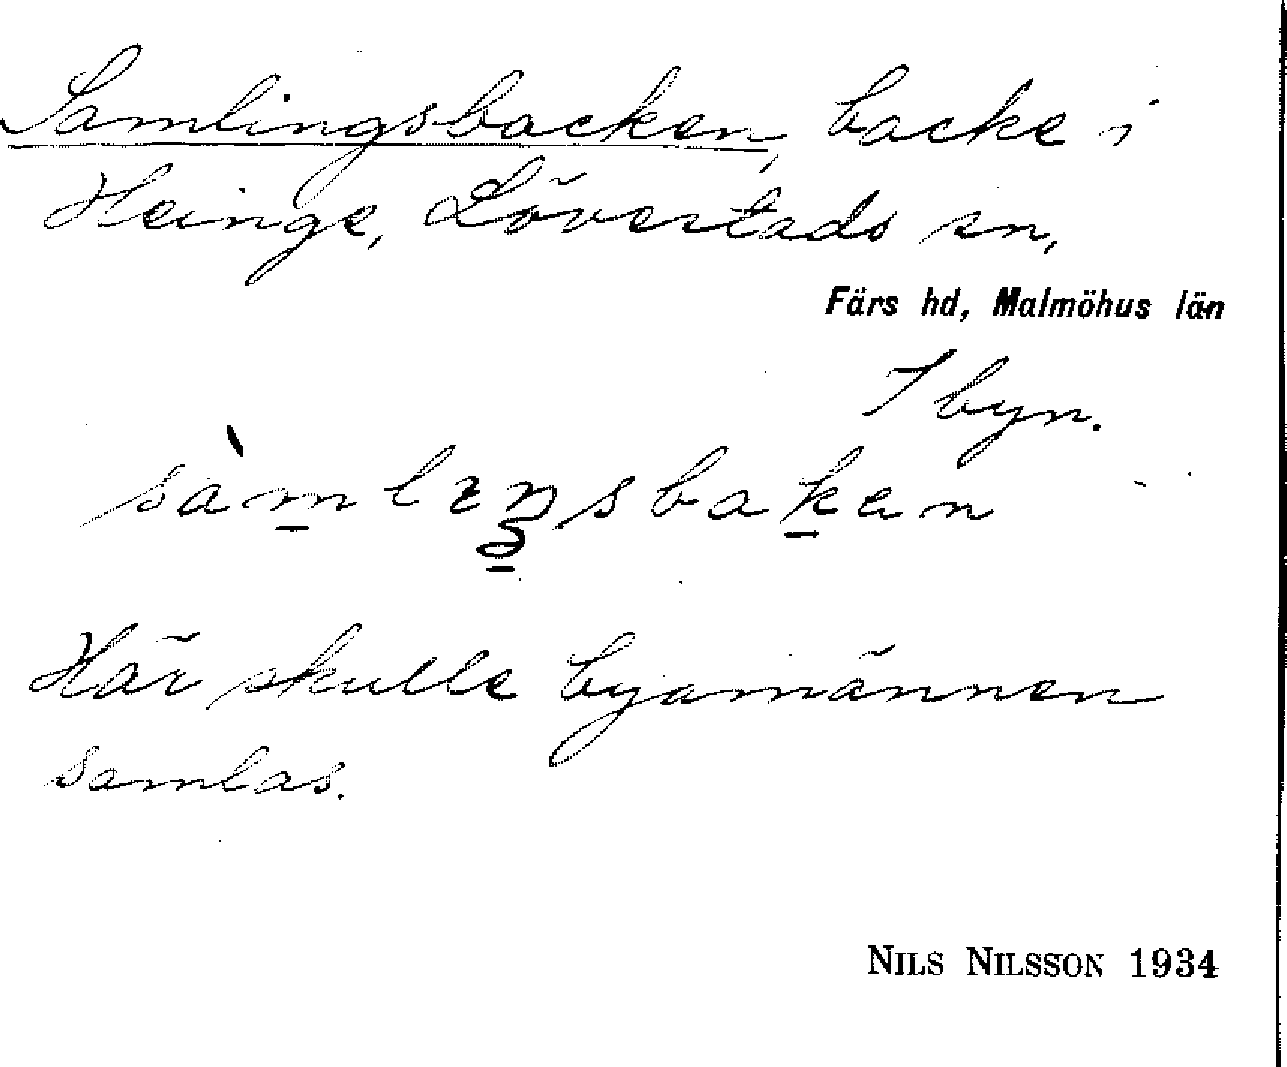 Samlingsbacken, backe i
Heinge, Lövestads sn,
Färs hd, Malmöhus län
I byn.
sàmlıŋsbaken
Här skulle byamännen
samlas.
NILS NILSSON 1934